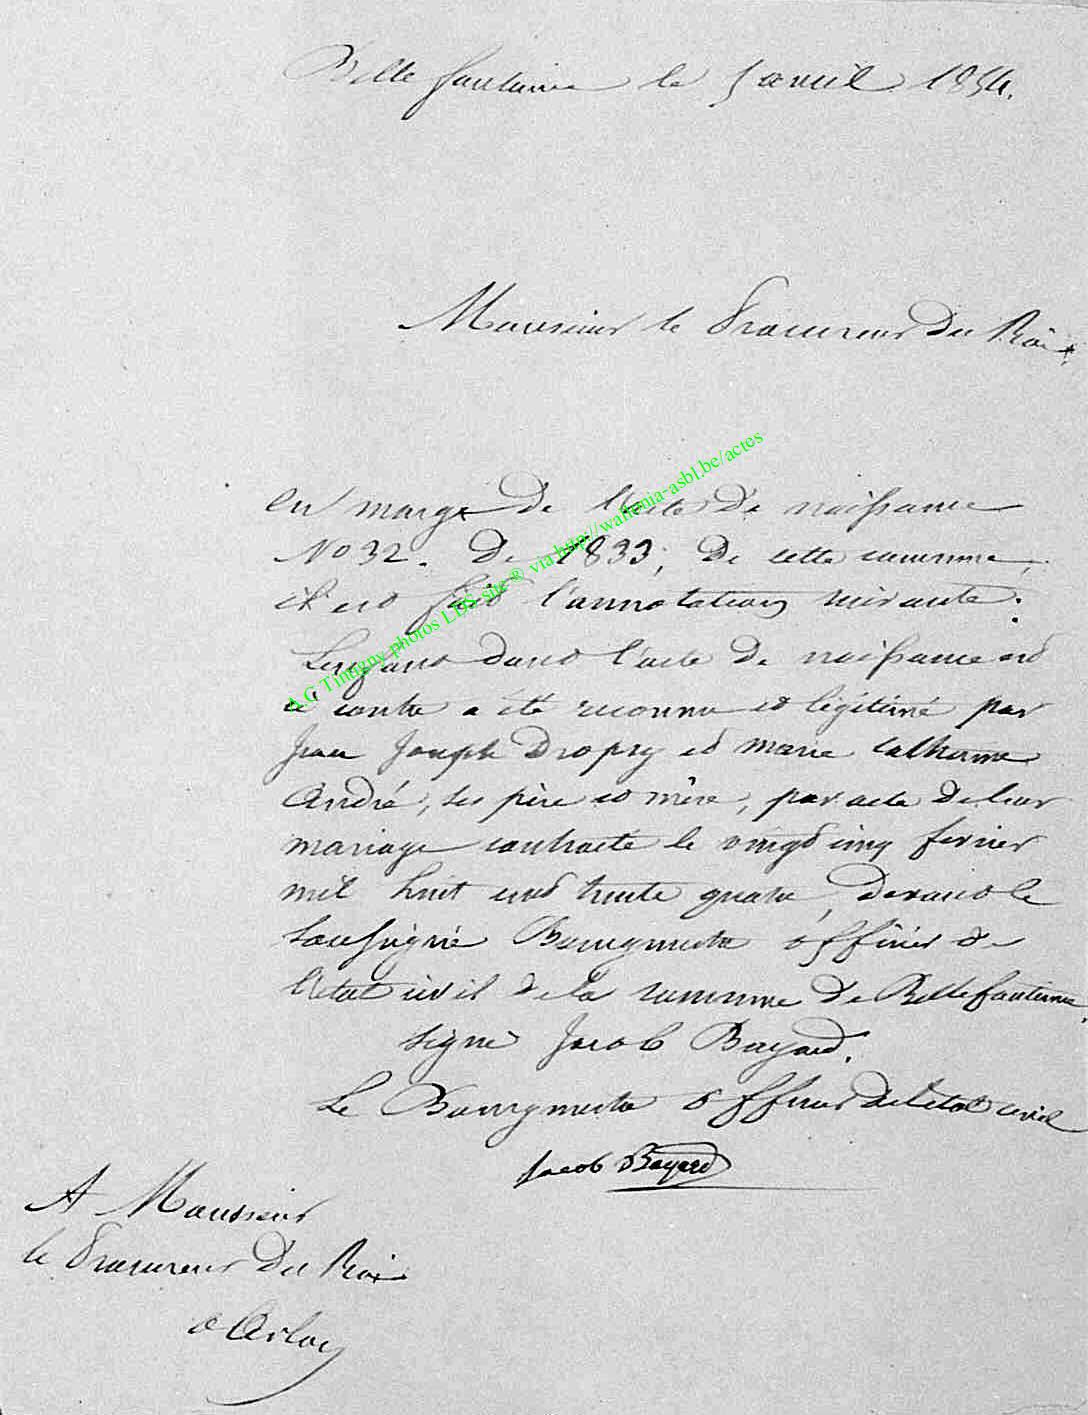 Bellefontaine le 5 avril 1854.
Monsieur le Procureur du Roi,
en marge de l'acte de naissance
No 32. De 1833, de cette commune,
il est fait l'annotation suivante.
L'enfant dont l'acte de naissance est
ci contre a été reconnu et légitimé par
Jean Joseph Dropsy et marie catherine
André, ses père et mère, par acte de leur
mariage contracté le vingt cinq fevrier
mil huit cent trente quatre, devant le
Soussigné Bourgmestre officier de
l'état civil de la commune de Bellefontaine.
signé Jacob Bayard.
Le Bourgmestre officier de l'etat civil
Jacob Bayard
A Monsieur
le Procureur du Roi
a Arlon
A.G Tintigny photos LDS site ® via http://wallonia-asbl.be/actes